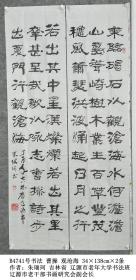 東臨碣石以觀滄海水何澹
澹山島竦峙樹木叢生百草豐茂
秋風蕭瑟洪波涌起日月之行
若出其中星漢燦爛若出其裏幸
甚至哉歌以詠志
出夏門行觀滄海
B4741号书法 曹操 观沧海 34×138cm×2条
作者：朱瑞珂 吉林省 辽源市老年大学书法班
辽源市老干部书画研究会副会长